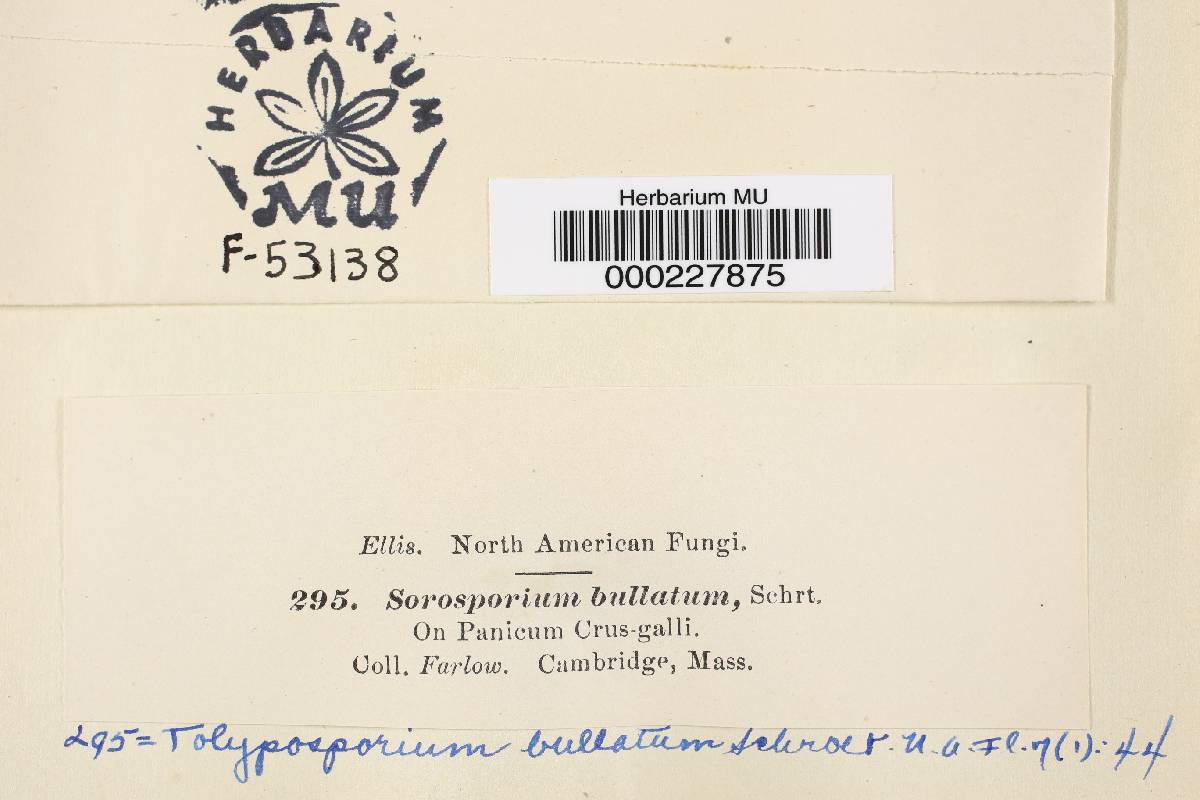 HERBARIUM
MU
F-53138
Herbarium MU
000227875
Ellis. North American Fungi.
295. Sorosporium bullatum, Schrt.
On Panicum Crus-galli.
Coll. Farlow. Cambridge, Mass.
295 = Tolyposporium bullatum Schroet. N. A. Fl. 7(1): 44